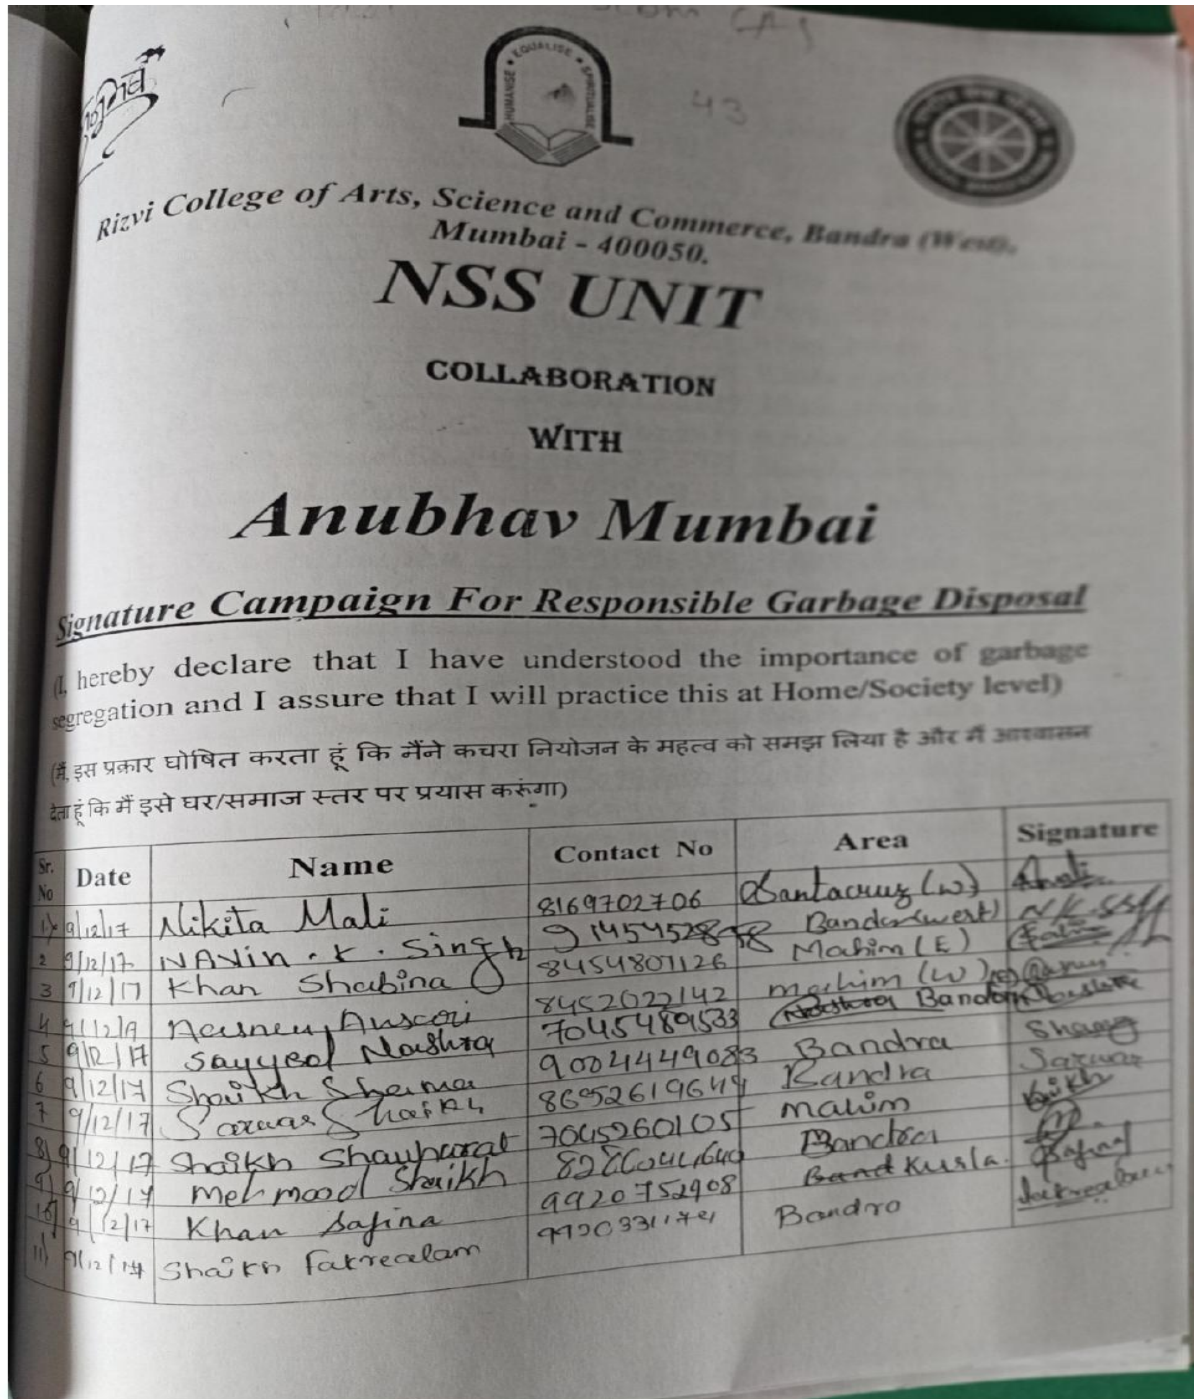 43
HUMANISE • EQUALISE • SPIRITUALISE
Rizvi College of Arts, Science and Commerce, Bandra (West),
Mumbai - 400050.
NSS UNIT
COLLABORATION
WITH
Anubhav Mumbai
Signature Campaign For Responsible Garbage Disposal
(I, hereby declare that I have understood the importance of garbage
segregation and I assure that I will practice this at Home/Society level)
(मैं, इस प्रकार घोषित करता हूं कि मैंने कचरा नियोजन के महत्व को समझ लिया है और मैं आश्वासन
देता हूं कि मैं इसे घर/समाज स्तर पर प्रयास करुंगा)
Sr. No Date Name Contact No Area Signature
1) 9/12/17 Nikita Mali 8169702706 Santacruz (W)
2 9/12/17 NAVin . K . Singh Bandra (west) N.K.
3 9/12/17 Khan Shabina 8454801126 Mahim (E)
4 8452022142 mahim (W)
5 9/12/17 Sayyed Nashra 7045489533 Bandra
6 9/12/17 Shaikh 9004449083 Bandra
7 9/12/17 Sarwar Shaikh Bandra Sarwar
8) 9/12/17 Shaikh 7045260105 mahim
9) 9/12/17 Mehmood Shaikh Bandra
10) 9/12/17 Khan Safina 9920752908 Kurla. Safina
11) 9/12/17 Shaikh Fakrealam Bandra